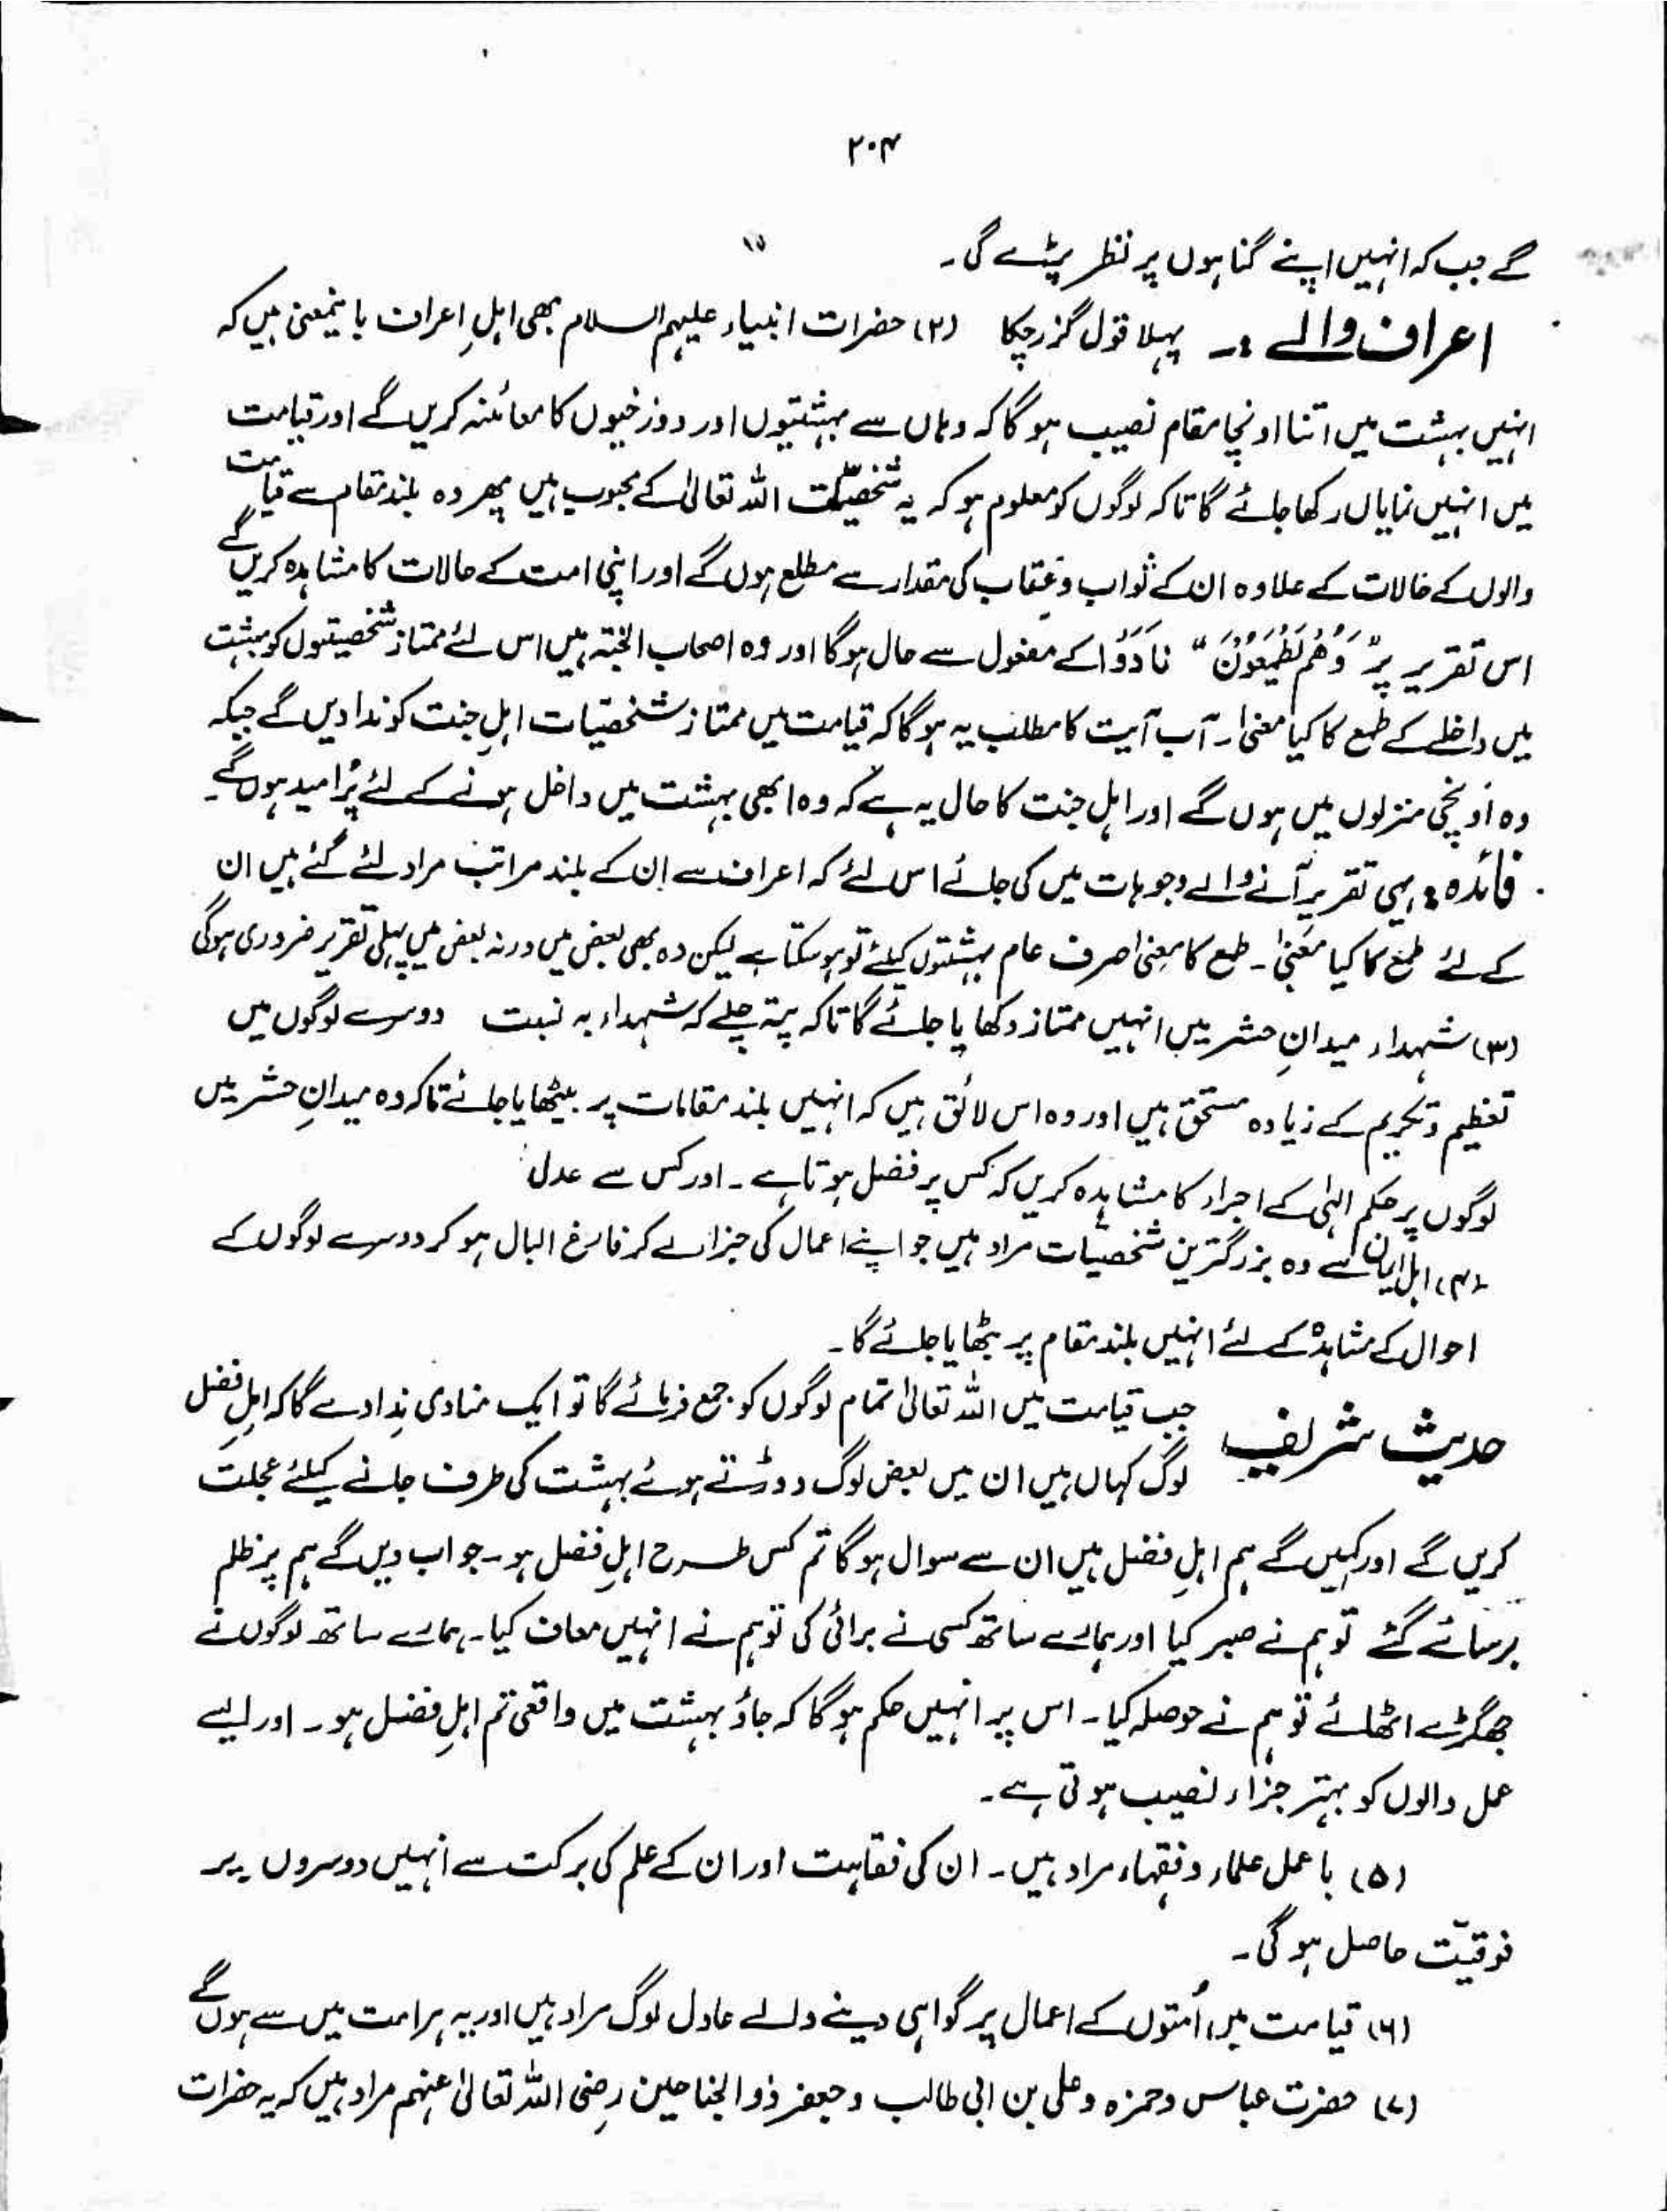 ۲۰۴
گے جب کہ انہیں اپنے گناہوں پر نظر پڑے گی۔
اعراف والے :۔ پہلا قول گزر چکا (۲) حضرات انبیاء علیہم السلام بھی اہلِ اعراف باینمعنٰی ہیں کہ
انہیں بہشت میں اتنا اونچا مقام نصیب ہوگا کہ وہاں سے بہشتیوں اور دوزخیوں کا معائنہ کریں گے اور قیامت
میں انہیں نمایاں رکھا جائے گا تاکہ لوگوں کو معلوم ہو کہ یہ شخصیّت اللہ تعالٰی کے محبوب ہیں پھر وہ بلند مقام سے قیامت
والوں کے حالات کے علاوہ ان کے ثواب و عقاب کی مقدار سے مطلع ہوں گے اور اپنی امت کے حالات کا مشاہدہ کریں گے
اس تقریر پر ”وَهُمْ يَطْمَعُوْنَ“ نَادَوْا کے مفعول سے حال ہوگا اور وہ اصحاب الجنتہ ہیں اس لئے ممتاز شخصیتوں کو بہشت
میں داخلے کے طمع کا کیا معنٰی۔ اب آیت کا مطلب یہ ہوگا کہ قیامت میں ممتاز شخصیّات اہلِ جنت کو ندا دیں گے جبکہ
وہ اُونچی منزلوں میں ہوں گے اور اہلِ جنت کا حال یہ ہے کہ وہ ابھی بہشت میں داخل ہونے کے لئے پُرامید ہوں گے۔
فائدہ : یہی تقریر آنے والے وجوہات میں کی جائے اس لئے کہ اعراف سے ان کے بلند مراتب مراد لئے گئے ہیں ان
کے لئے طمع کا کیا معنٰی۔ طمع کا معنٰی صرف عام بہشتیوں کیلئے تو ہو سکتا ہے لیکن وہ بھی بعض میں ورنہ بعض میں پہلی تقریر ضروری ہوگی
(۳) شہداء میدانِ حشر میں انہیں ممتاز دکھایا جائے گا تاکہ پتہ چلے کہ شہداء بہ نسبت دوسرے لوگوں میں
تعظیم و تکریم کے زیادہ مستحق ہیں اور وہ اس لائق ہیں کہ انہیں بلند مقامات پر بیٹھایا جائے تاکہ وہ میدانِ حشر میں
لوگوں پر حکم الہٰی کے اجراء کا مشاہدہ کریں کہ کس پر فضل ہوتا ہے۔ اور کس سے عدل
(۴) اہلِ ایمان کے وہ بزرگترین شخصیّات مراد ہیں جو اپنے اعمال کی جزا لے کر فارغ البال ہو کر دوسرے لوگوں کے
احوال کے مشاہدہ کے لئے انہیں بلند مقام پر بٹھایا جائے گا۔
حدیث شریف جب قیامت میں اللہ تعالٰی تمام لوگوں کو جمع فرمائے گا تو ایک منادی نِدا دے گا کہ اہلِ فضل
لوگ کہاں ہیں ان میں بعض لوگ دوڑتے ہوئے بہشت کی طرف جانے کیلئے عجلت
کریں گے اور کہیں گے ہم اہلِ فضل ہیں ان سے سوال ہوگا تم کس طرح اہلِ فضل ہو۔ جواب دیں گے ہم پر ظلم
برسائے گئے تو ہم نے صبر کیا اور ہمارے ساتھ کسی نے برائی کی تو ہم نے انہیں معاف کیا۔ ہمارے ساتھ لوگوں نے
جھگڑے اٹھائے تو ہم نے حوصلہ کیا۔ اس پر انہیں حکم ہوگا کہ جاؤ بہشت میں واقعی تم اہلِ فضل ہو۔ اور ایسے
عمل والوں کو بہتر جزاء نصیب ہوتی ہے۔
(۵) باعمل علماء و فقہاء مراد ہیں۔ ان کی فقاہت اور ان کے علم کی برکت سے انہیں دوسروں پر
فوقیّت حاصل ہوگی۔
(۶) قیامت میں اُمتوں کے اعمال پر گواہی دینے والے عادل لوگ مراد ہیں اور یہ ہر امت میں سے ہوں گے
(۷) حضرت عباس و حمزہ و علی بن ابی طالب و جعفر ذوالجناحین رضی اللہ تعالٰی عنہم مراد ہیں کہ یہ حضرات